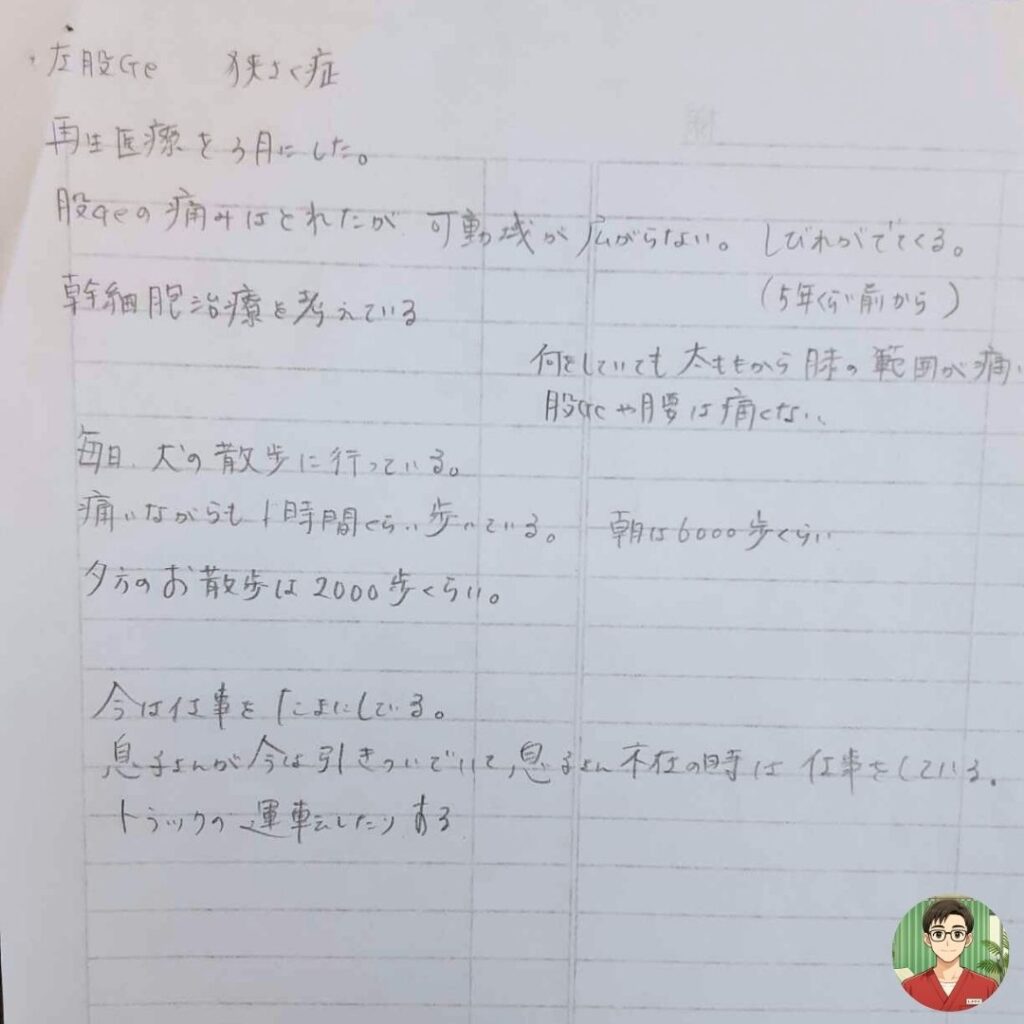 ・左股Ge 狭さく症
再生医療を3月にした。
股Geの痛みはとれたが 可動域が広がらない。 しびれがでてくる。
(5年くらい前から)
幹細胞治療を考えている
何をしていても 太ももから 膝の範囲が痛い
股Geや腰は痛くない、
毎日、犬の散歩に行っている。
痛いながらも 1時間くらい歩いている。 朝は6000歩くらい
夕方のお散歩は2000歩くらい。
今は仕事をたまにしている。
息子さんが今は引きついでいて、息子さん不在の時は仕事をしている。
トラックの運転したりある